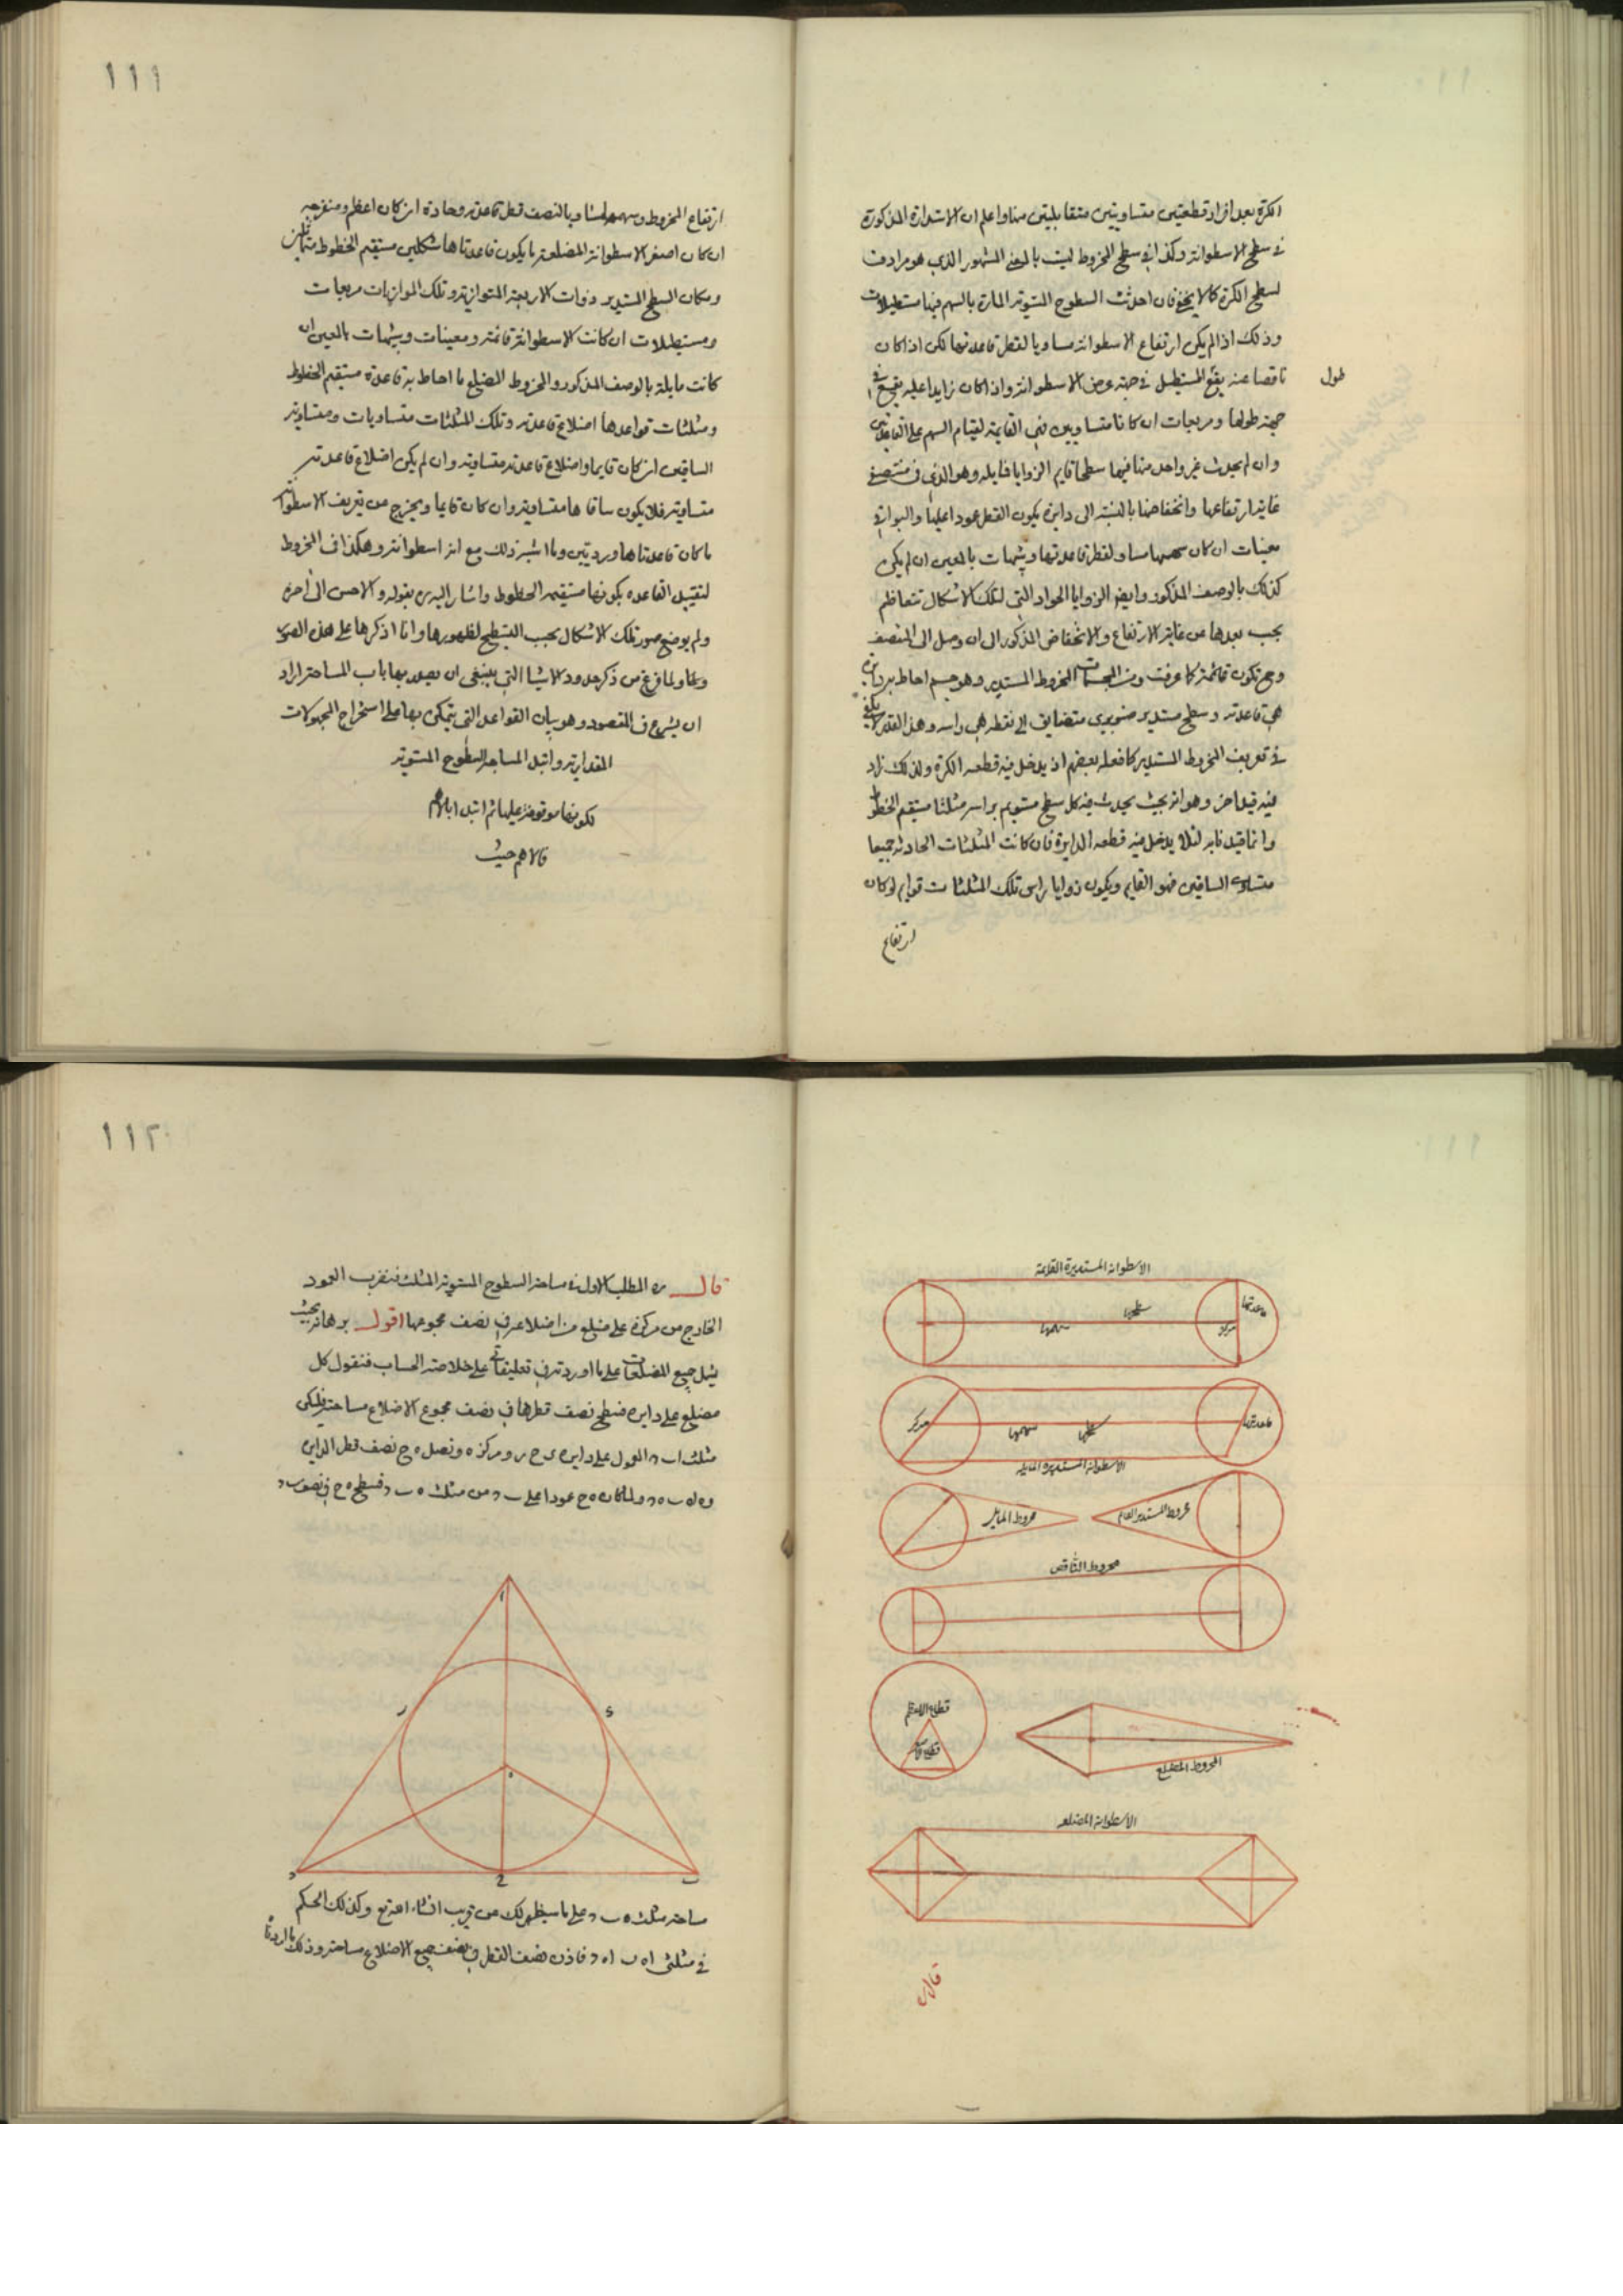 الكرة بعد افراد قطعتين متساويتين متقابلتين منها واعلم ان الاستدارة المذكورة
في سطح الاسطوانة وكذا في سطح المخروط ليست بالمعنى المشهور الذي هو مرادف
لسطح الكرة كما لا يخفى فان احدثت السطوح المستوية المارة بالسهم فيها مستطيلات
وذلك اذا لم يكن ارتفاع الاسطوانة مساويا لقطر قاعدتها لكن اذا كان
ناقصا عنه يقع المستطيل في جهة عرض الاسطوانة واذا كان زايدا عليه يقع في
طول
جهة طولها ومربعات ان كانا متساويين فهي القايمة لقيام السهم على القاعدتين
وان لم يحدث غير واحد منها فيها سطحا قايم الزوايا فمايله وهو الذي في منتصف
غاية ارتفاعها وانخفاضها بالنسبة الى دايرة يكون القطر عمودا عليها والبواقي
معينات ان كان سهمها مساو لقطر قاعدتها وشبهات بالمعين ان لم يكن
كذلك بالوصف المذكور وايض الزوايا الحواد التي لتلك الاشكال تتعاظم
بحسب بعدها عن غاية الارتفاع والانخفاض المذكور الى ان وصل الى المنتصف
وح تكون قائمة كما عرفت ومن المجسمات المخروط المستدير وهو جسم احاط به دايرة
هي قاعدته وسطح مستدير صنوبري متضايق الى نقطة هي راسه وهذا القدر لا يكفي
في تعريف المخروط المستدير كما فعله بعضهم اذ يدخل فيه قطعه الكرة ولذلك زاد
فيه قيدا اخر وهو انه بحيث يحدث فيه كل سطح مستو يمر براسه مثلثا مستقيم الخطوط
وانما قيد نا به لئلا يدخل فيه قطعه الدايرة فان كانت المثلثات الحادثة جميعا
متساوي الساقين فهو القايم ويكون زوايا راس تلك المثلثات قوايم لو كان
ارتفاع
١١١
ارتفاع المخروط وسهمه مساويا لنصف قطر قاعدته وحادة ان كان اعظم ومنفرجه
ان كان اصغر الاسطوانة المضلعة ما يكون قاعدتاها شكلين مستقيم الخطوط متماثلين
ومكان السطح المستدير ذوات الاربعة المتوازية وتلك الموازيات مربعات
ومستطيلات ان كانت الاسطوانة قائمة ومعينات وشبهات بالمعين ان
كانت مايلة بالوصف المذكور والمخروط المضلع ما احاط به قاعدة مستقيم الخطوط
ومثلثات قواعدها اضلاع قاعدته وتلك المثلثات متساويات ومتساوية
الساقين ان كان قايما واضلاع قاعدته متساوية وان لم يكن اضلاع قاعدته
متساوية فلا يكون ساقاها متساوية وان كان قايما ويخرج من تعريف الاسطوانة
ما كان قاعدتاها ورديتين وما اشبه ذلك مع انه اسطوانة وهكذا في المخروط
لتقييد القاعده بكونها مستقيم الخطوط واشار اليه ره بقوله والاحسن الى اخره
ولم يوضع صور تلك الاشكال بحسب التسطيح لظهورها وانا اذكرها على هذه الصور
ولما فرغ من ذكر حدود الاشيا التي ينبغي ان يصدر بها باب المساحة اراد
ان يشرع في المقصود وهو بيان القواعد التي يتمكن بها على استخراج المجهولات
المقدارية وابتدا لمساحة السطوح المستوية
لكونها موقوفة عليها ثم ابتدا بالاهم
فالاهم حيث
الاسطوانة المستديرة القائمة
قاعدتها
سطحها
سهمها
مركز
قاعدتها
سطحها
سهمها
مركز
الاسطوانة المستديرة المايلة
مخروط المستدير القايم
مخروط المايل
مخروط الناقص
قطاع الاعظم
المخروط المضلع
الاسطوانة المضلعه
قال
١١٢
قال ره المطلب الاول في مساحة السطوح المستوية المثلث فنضرب العمود
الخارج من مركزه على ضلع من اضلاعه في نصف مجموعها اقول برهانه بحيث
يشمل جميع المضلعات على ما اوردته في تعليقاتي على خلاصة الحساب فنقول كل
مضلع على دايرة فسطح نصف قطرها في نصف مجموع الاضلاع مساحته فليكن
مثلث ا ب د المعمول على دايرة ى ح ر ومركزه ه ونصل ه ح نصف قطر الدايرة
و ه ا ه ب ه د ولما كان ه ح عمودا على ب د من مثلث ه ب د فسطح ه ح في نصف ب د
ا
ر
ى
ه
د
ح
ب
مساحة مثلث ه ب د على ما سيظهر لك عن قريب انشاء الله تع وكذلك الحكم
في مثلثي ا ه ب ا ه د فاذن نصف القطر في نصف جميع الاضلاع مساحته وذلك ما اردنا